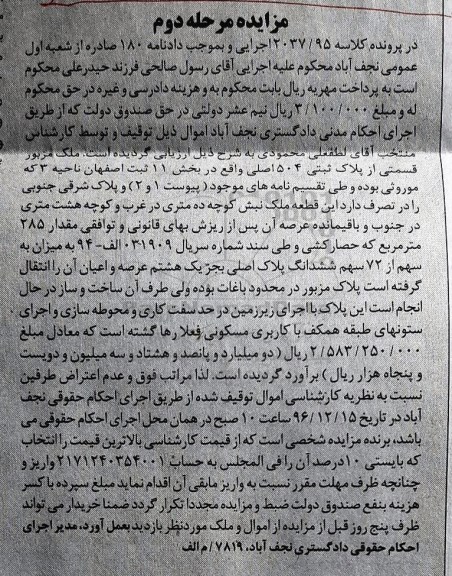 مزایده مرحله دوم
در پرونده کلاسه ۲۰۳۷/۹۵ اجرایی و بموجب دادنامه ۱۸۰ صادره از شعبه اول
عمومی نجف آباد محکوم علیه اجرایی آقای رسول صالحی فرزند حیدرعلی محکوم
است به پرداخت مهریه ریال بابت محکوم به و هزینه دادرسی و غیره در حق محکوم
له و مبلغ ۳/۱۰۰/۰۰۰ ریال نیم عشر دولتی در حق صندوق دولت که از طریق
اجرای احکام مدنی دادگستری نجف آباد اموال ذیل توقیف و توسط کارشناس
منتخب آقای لطفعلی محمودی به شرح ذیل ارزیابی گردیده است. ملک مزبور
قسمتی از پلاک ثبتی ۵۰۴ اصلی واقع در بخش ۱۱ ثبت اصفهان ناحیه ۳ که
موروثی بوده و طی تقسیم نامه های موجود (پیوست ۱ و ۲) و پلاک شرقی جنوبی
را در تصرف دارد این قطعه ملک نبش کوچه ده متری در غرب و کوچه هشت متری
در جنوب و باقیمانده عرصه آن پس از ریزش بهای قانونی و توافقی مقدار ۲۸۵
مترمربع که حصارکشی و طی سند شماره سریال ۰۳۱۹۰۹ الف-۹۴ به میزان به
سهم از ۷۲ سهم ششدانگ پلاک اصلی بجز یک هشتم عرصه و اعیان آن را انتقال
گرفته است پلاک مزبور در محدود باغات بوده ولی طرف آن ساخت و ساز در حال
انجام است این پلاک با اجرای زیرزمین در حد سفت کاری و محوطه سازی و اجرای
ستونهای طبقه همکف با کاربری مسکونی فعلا رها گشته است که معادل مبلغ
۲/۵۸۳/۲۵۰/۰۰۰ ریال (دو میلیارد و پانصد و هشتاد و سه میلیون و دویست
و پنجاه هزار ریال) برآورد گردیده است. لذا مراتب فوق و عدم اعتراض طرفین
نسبت به نظریه کارشناسی اموال توقیف شده از طریق اجرای احکام حقوقی نجف
آباد در تاریخ ۹۶/۱۲/۱۵ ساعت ۱۰ صبح در همان محل اجرای احکام حقوقی می
باشد، برنده مزایده شخصی است که از قیمت کارشناسی بالاترین قیمت را انتخاب
که بایستی ۱۰درصد آن را فی المجلس به حساب ۲۱۷۱۲۴۰۳۵۴۰۰۱ واریز و
چنانچه ظرف مهلت مقرر نسبت به واریز مابقی آن اقدام نماید مبلغ سپرده با کسر
هزینه بنفع صندوق دولت ضبط و مزایده مجددا تکرار گردد ضمنا خریدار می تواند
ظرف پنج روز قبل از مزایده از اموال و ملک موردنظر بازدید بعمل آورد. مدیر اجرای
احکام حقوقی دادگستری نجف آباد، ۷۸۱۹/م الف